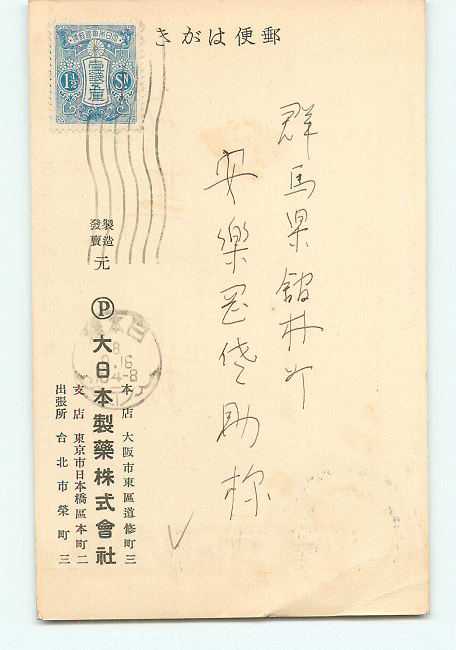 郵便はがき
大日本帝國郵便
壹錢五厘
1½ Sn
群馬県館林町
安樂岡佐助様
製造
發賣
元
P 大日本製藥株式會社
本店 大阪市東區道修町三
支店 東京市日本橋區本町二
出張所 台北市榮町三
日本橋
8
9.16
4-8